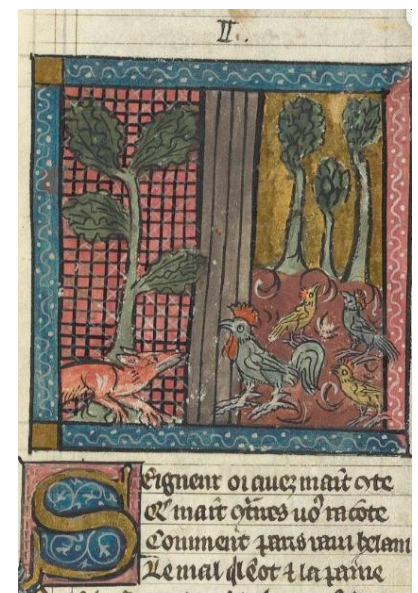 II.
Seigneur oi avez maīt cōte
Q̄ maīt ꝯteres uo9 racōte
Comment paris raui helain
Le mal q̄l eot ⁊ la paine